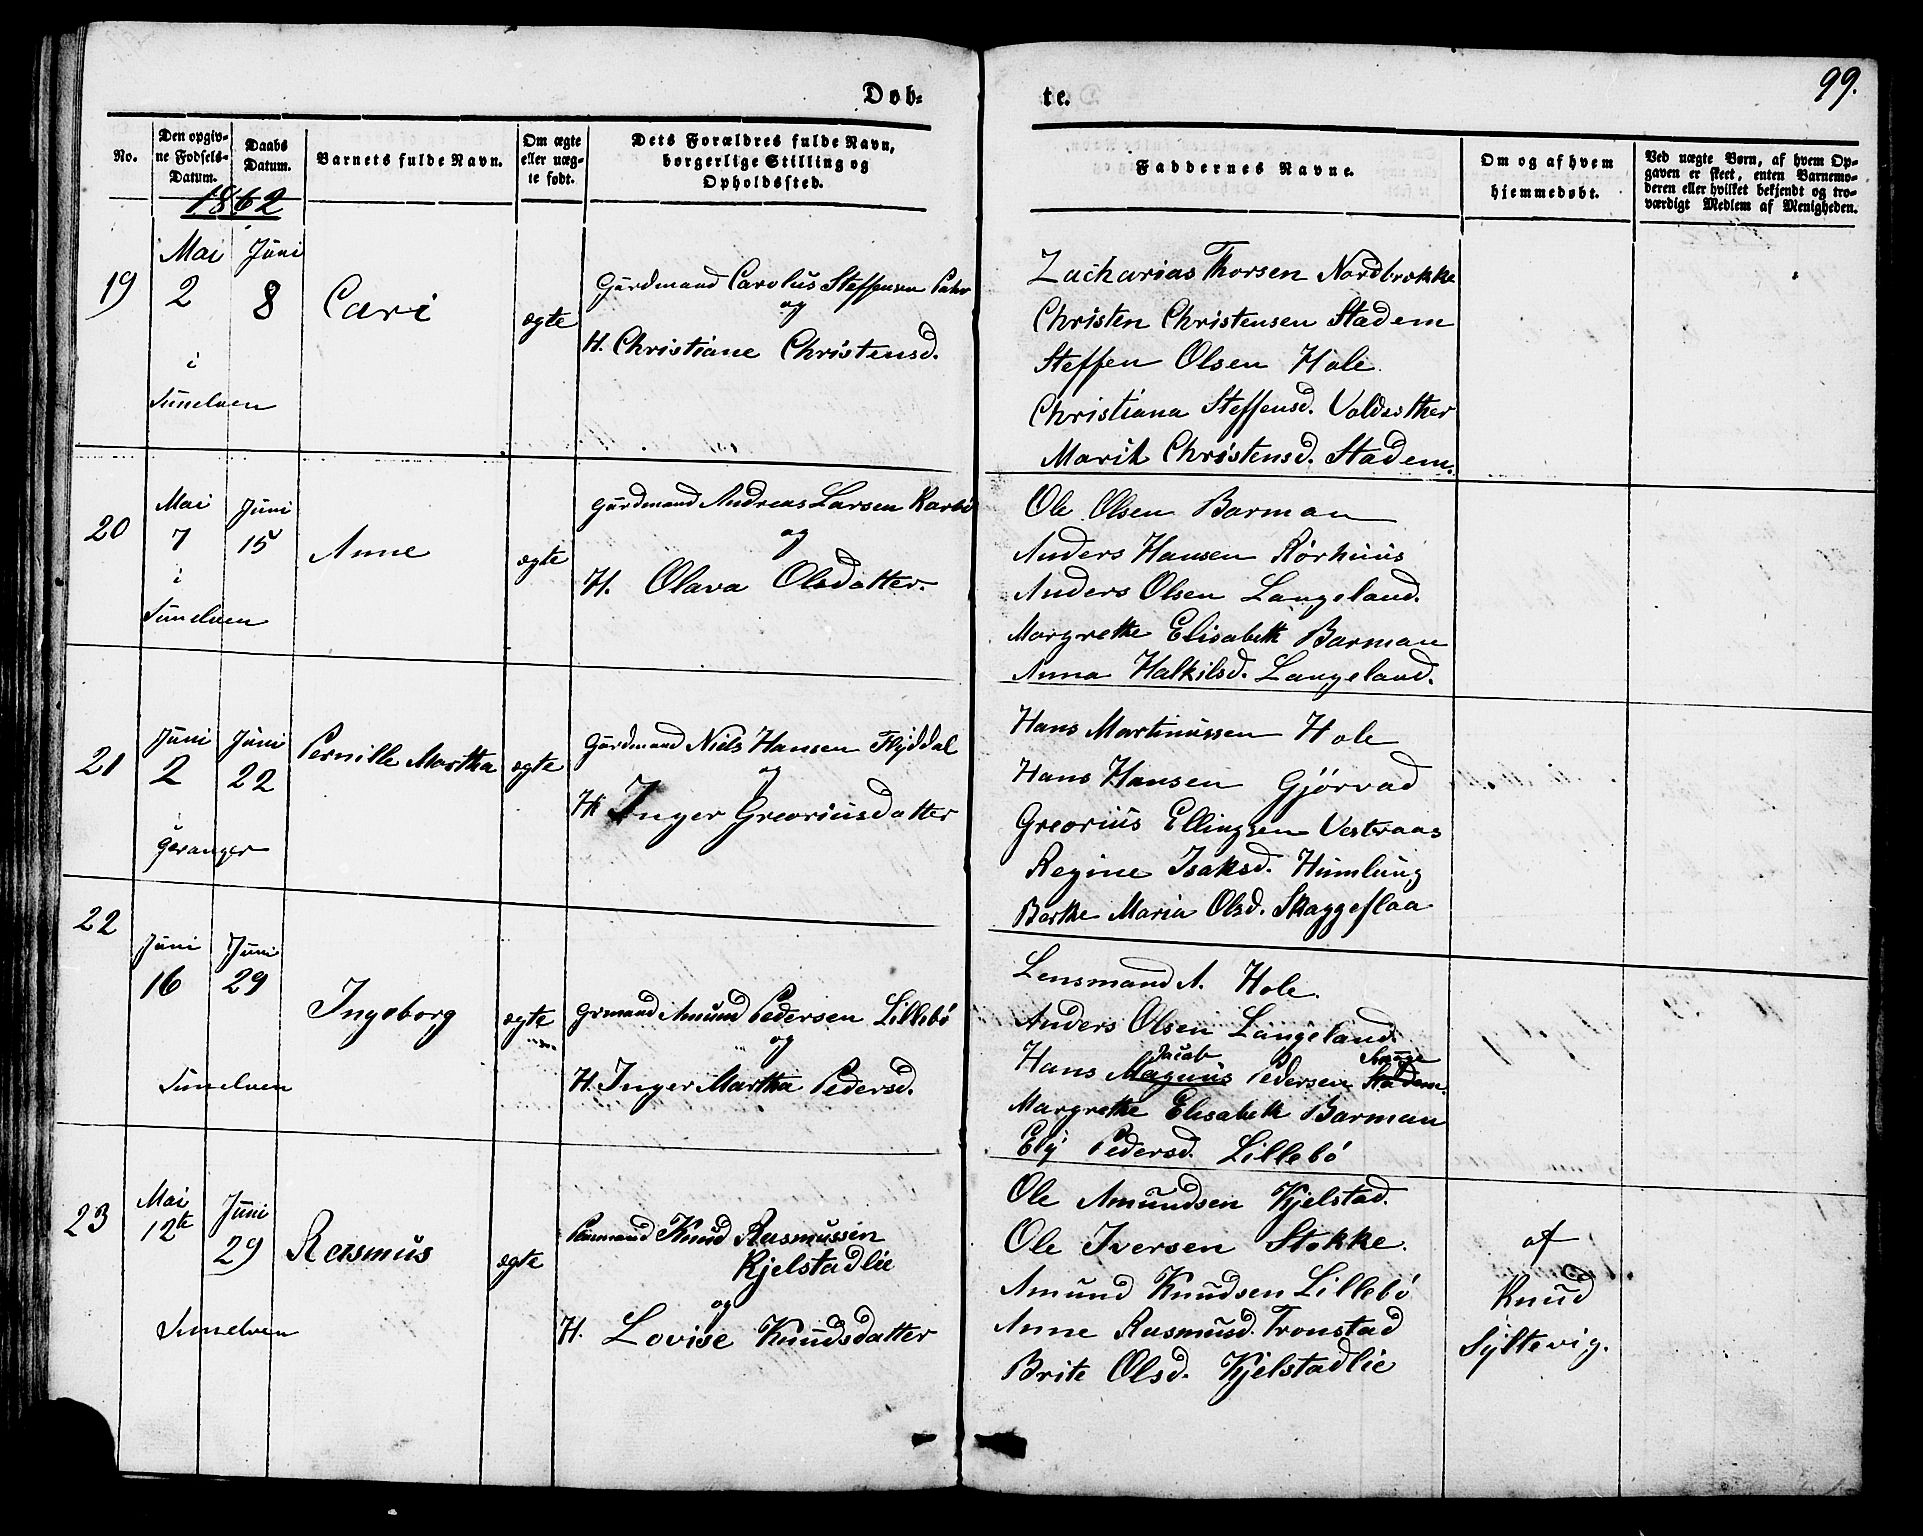 Døb-
te.
99.
No.
Den opgiv-
ne Fødsels-
Datum.
Daabs
Datum.
Barnets fulde Navn.
Om ægte
eller uæg-
te født.
Dets Forældres fulde Navn,
borgerlige Stilling og
Opholdssted.
Faddernes Navne.
Om og af hvem
hjemmedøbt.
Ved uægte Børn, af hvem Op-
gaven er skeet, enten Barnemo-
deren eller hvilket bekjendt og tro-
værdigt Medlem af Menigheden.
1862
19
Mai
2
i
Sunelven
Juni
8
Cari
ægte
Gårdmand Carolus Steffensen
og
H. Christiane Christensd.
Zacharias Thorsen Nordbrække
Christen Christensen Stadem
Steffen Olsen Hole
Christiana Steffensd. Voldsæther
Marit Christensd. Stadem.
20
Mai
7
i
Sunelven
Juni
15
Anne
ægte
Gårdmand Andreas Larsen Karbø
og
H. Olava Olsdatter.
Ole Olsen Barman
Anders Hansen Rørhuus
Anders Olsen Langeland.
Margrethe Elisabeth Barman
Anna Halkilsd. Langeland.
21
Juni
2
i
Geranger
Juni
22
Pernille Martha
ægte
Gårdmand Niels Hansen Flyddal
og
H Inger Greoriusdatter
Hans Martinussen Hole
Hans Hansen Gjørvad
Greorius Ellingsen Vestraas
Regine Isaksd. Humlung
Berthe Maria Olsd. Skaggeflaa
22
Juni
16
Sunelven
Juni
29
Ingeborg
ægte
Grmand Amund Pedersen Lillebø
og
H. Inger Martha Pedersd.
Lensmand A. Hole.
Anders Olsen Langeland.
Jacob
Hans Magnus Pedersen Stadem
Margrethe Elisabeth Barman
Ely Pedersd. Lillebø
23
Mai
12te
Sunelven
Juni
29
Rasmus
ægte
Knud Rasmussen
Kjelstadlie
og
H. Lovise Knudsdatter
Ole Amundsen Kjelstad.
Ole Iversen Stokke.
Amund Knudsen Lillebø
Anne Rasmusd. Tronstad
Brite Olsd. Kjelstadlie
af
Knud
Syltevig.